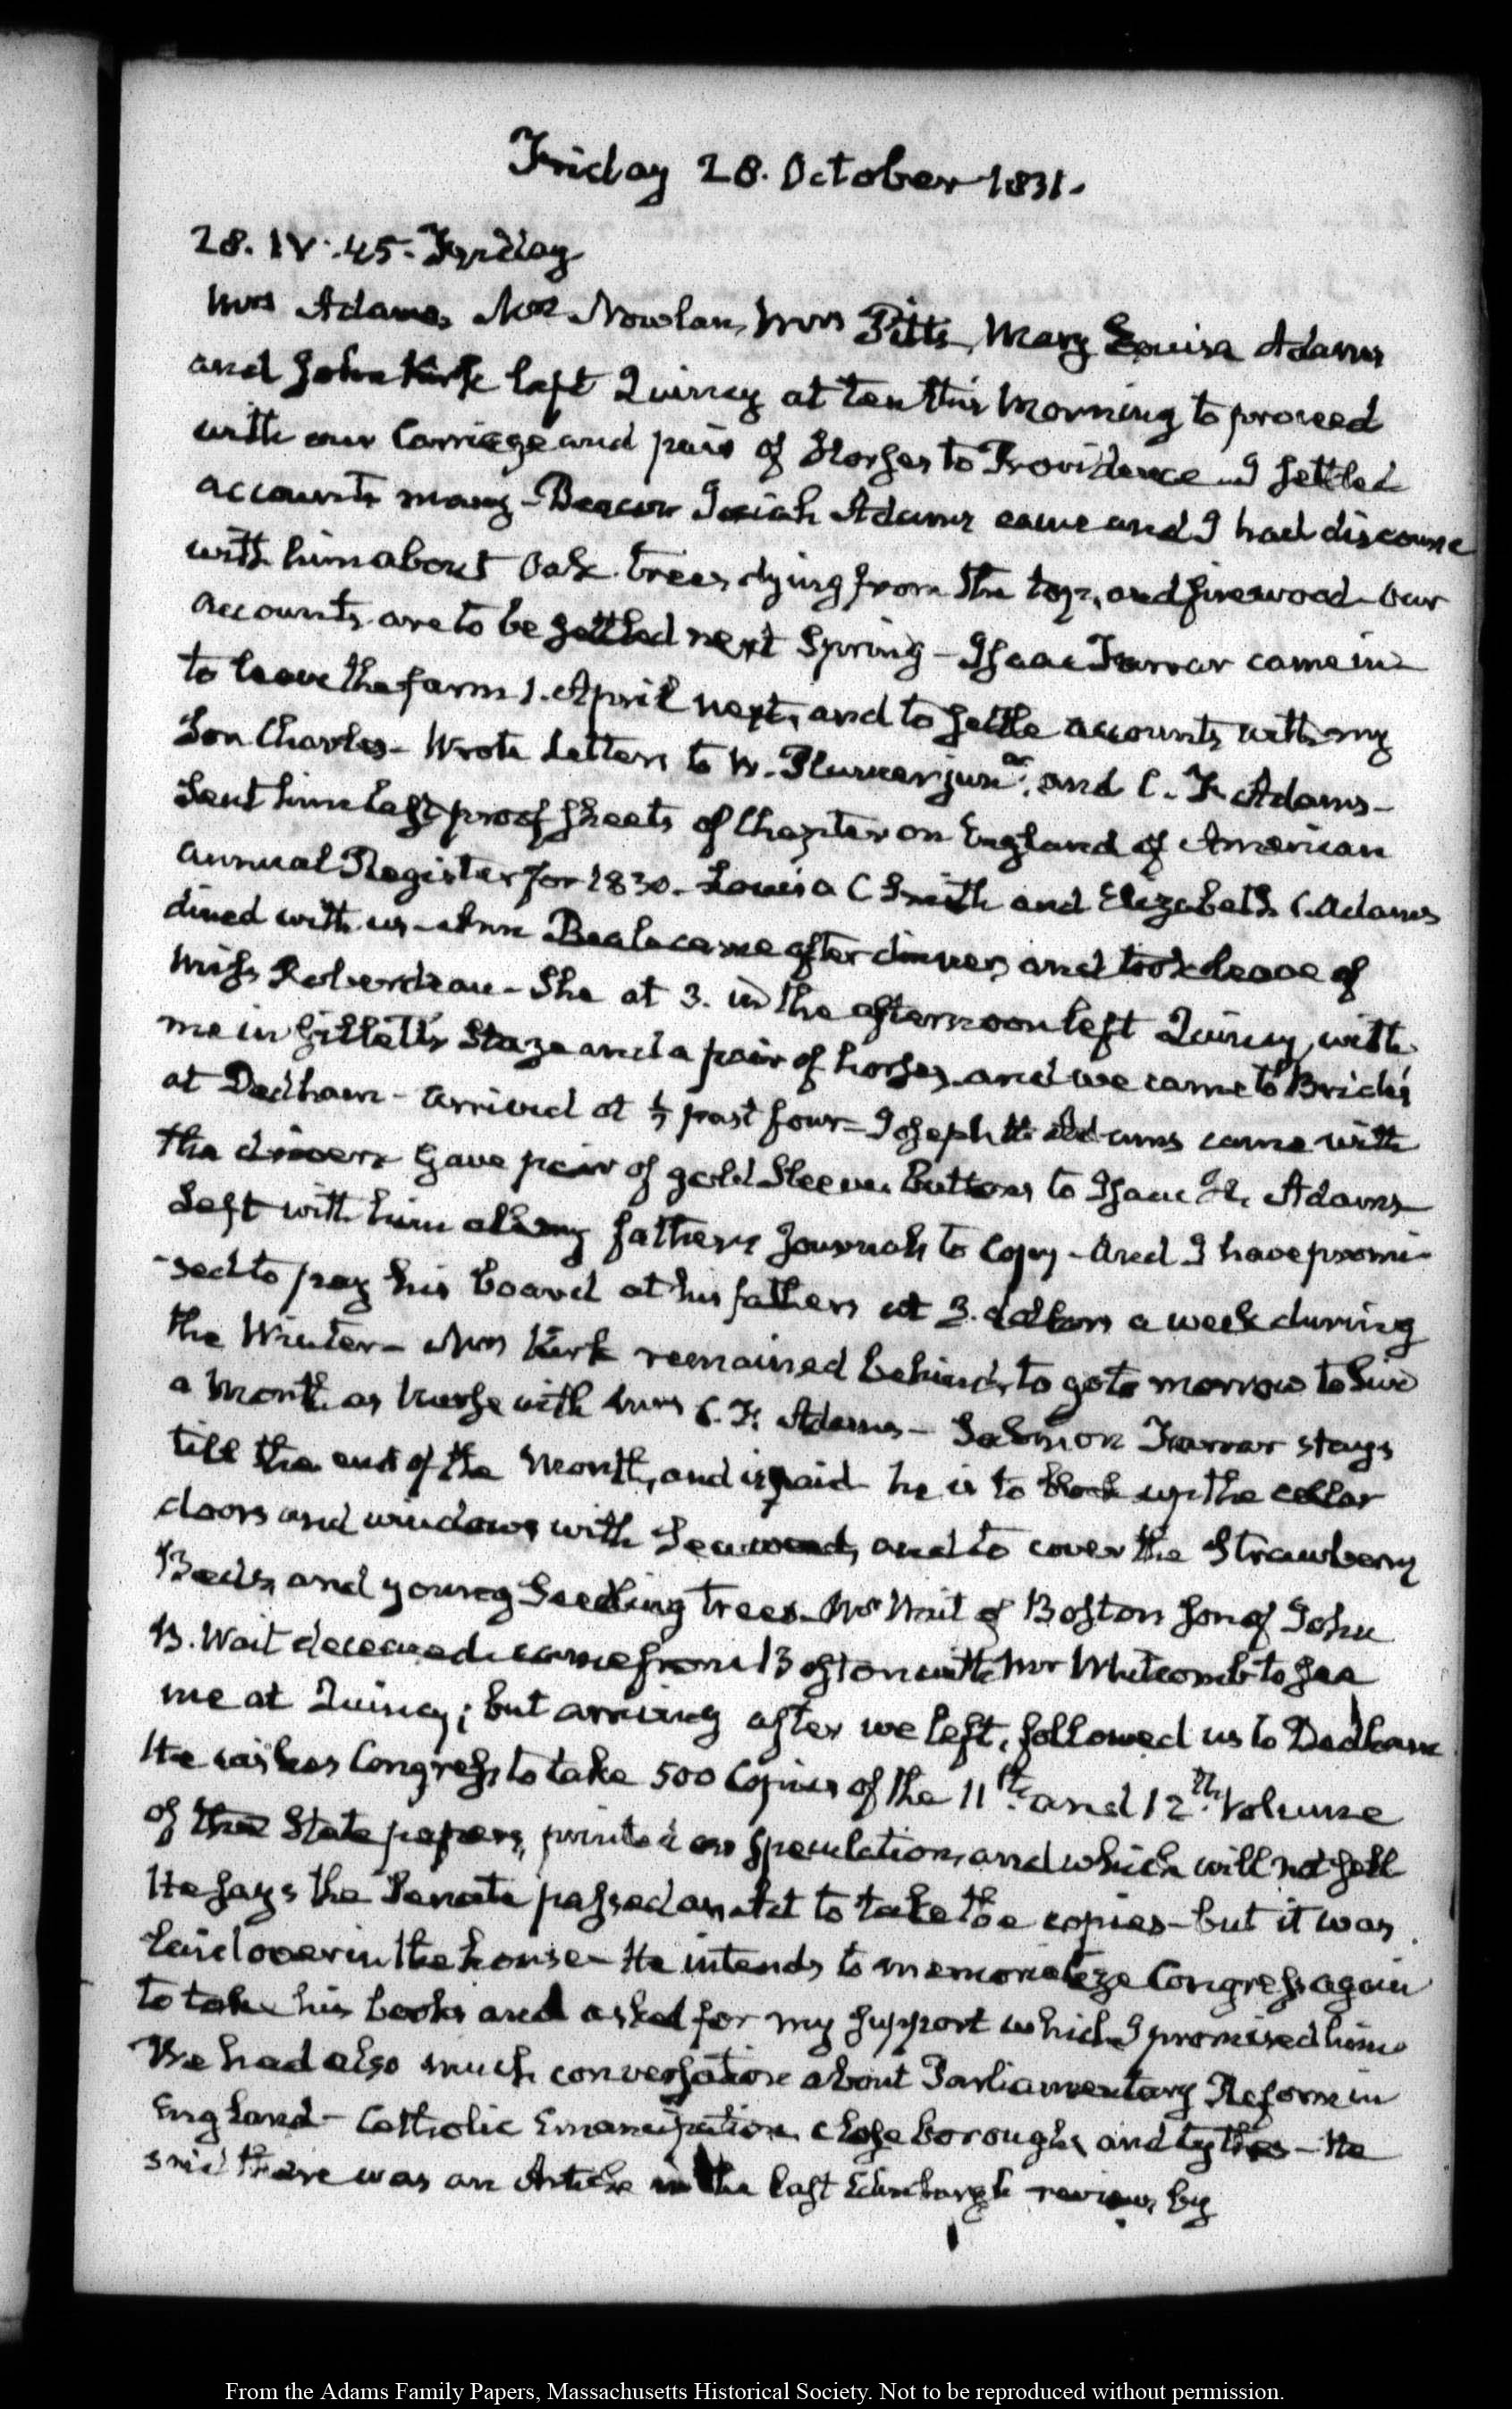 Friday 28. October 1831.
28. IV:45. Friday
Mrs Adams, Mrs Nowlan, Mrs Pitts, Mary Louisa Adams
and John Kirk left Quincy at ten this Morning to proceed
with our Carriage and pair of Horses to Providence I settled
accounts many - Deacon Josiah Adams came and I had discourse
with him about Oak trees dying from the top, and firewood - Our
accounts are to be settled next Spring - Isaac Farrar came in
to leave the farm 1. April next, and to settle accounts with my
Son Charles - Wrote Letters to W. Plumer junr. and C. F. Adams -
Sent him last proof sheets of Chapter on England of American
Annual Register for 1830. Louisa C Smith and Elizabeth C. Adams
dined with us - Ann Beale came after dinner, and took leave of
Miss Roberdeau - She at 3. in the afternoon left Quincy, with
me in Gillett's Stage and a pair of horses, and we came to Bride's
at Dedham - arrived at ½ past four - Joseph H. Adams came with
the driver. Gave pair of gold Sleeve Buttons to Isaac H. Adams
Left with him all my father's Journals to Copy - And I have promi-
-sed to pay his board at his fathers at 3. dollars a week during
the Winter - Mrs Kirk remained behind, to go to morrow to live
a Month as Nurse with Mrs C. F. Adams - Salmon Farrar stays
till the end of the Month, and is paid he is to block up the cellar
doors and windows with Seaweed, and to cover the Strawberry
Beds, and young Seedling trees. Mr Wait of Boston son of John
B. Wait deceased came from Boston with Mr Whitcomb to see
me at Quincy; but arriving after we left, followed us to Dedham
He wishes Congress to take 500 Copies of the 11th. and 12th. Volume
of the State papers, printed on speculation, and which will not sell
He says the Senate passed an Act to take the copies - but it was
laid over in the house - He intends to memorialize Congress again
to take his books and asked for my support which I promised him
We had also much conversation about Parliamentary Reform in
England - Catholic Emancipation, close boroughs, and tythes - He
said there was an Article in the last Edinburgh review, by
From the Adams Family Papers, Massachusetts Historical Society. Not to be reproduced without permission.